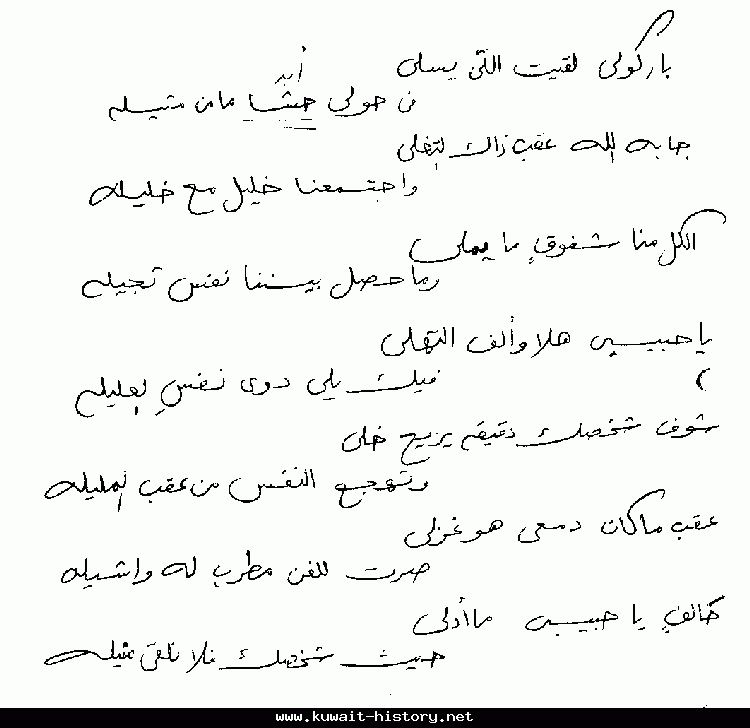 باركولي لقيت اللي يسلي
أبد
من حولي حشا ما من مثيله
جابه الله عقب ذاك التغلي
واجتمعنا خليل مع خليله
الكل منا شفوقٍ ما يملي
وما حصل بيننا نفس تجيله
يا حبيبي هلا وألف التهلي
فيك يلي دوى نفسٍ لعليله
شوف شخصك دقيقه يريح خلي
وتهجع النفس من عقب المليله
عقب ما كان دمعي هو غزلي
صرت للفن مطرب له واشيله
خالفٍ يا حبيبي ما أدلي
حيث شخصك فلا نلقى مثيله
www.kuwait-history.net